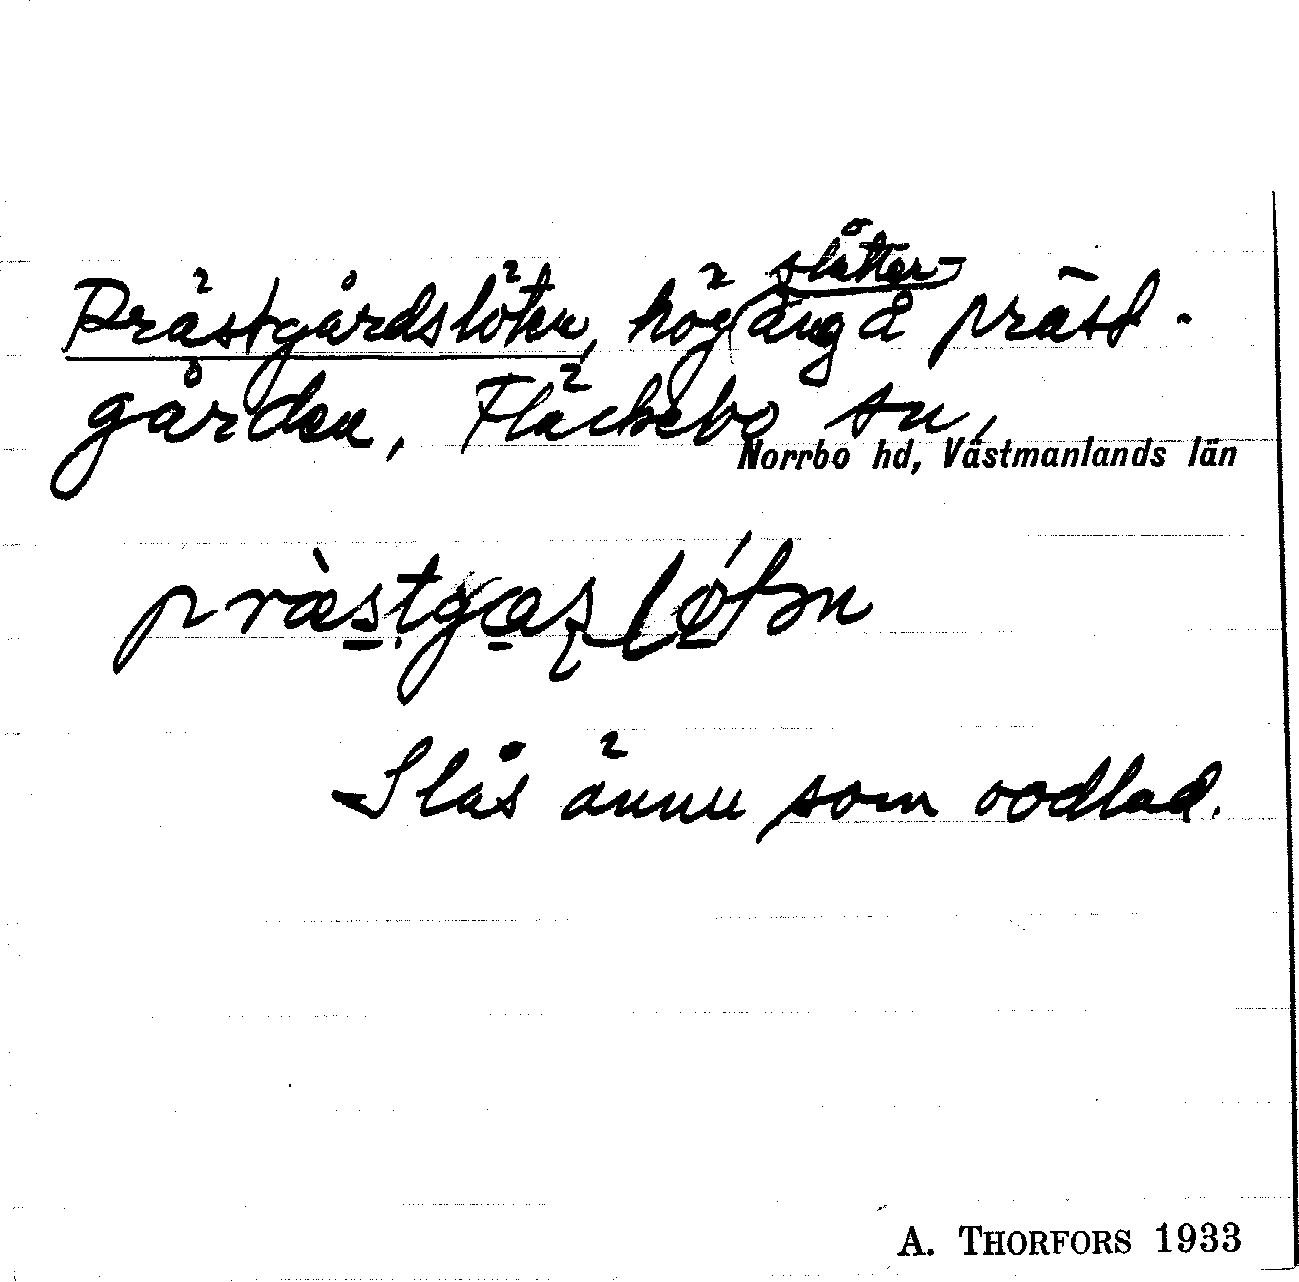 Prästgårdslöten, hög slåtteräng å präst-
gården, Fläckebo sn,
Norrbo hd, Västmanlands län
Slås ännu som oodlad.
A. THORFORS 1933